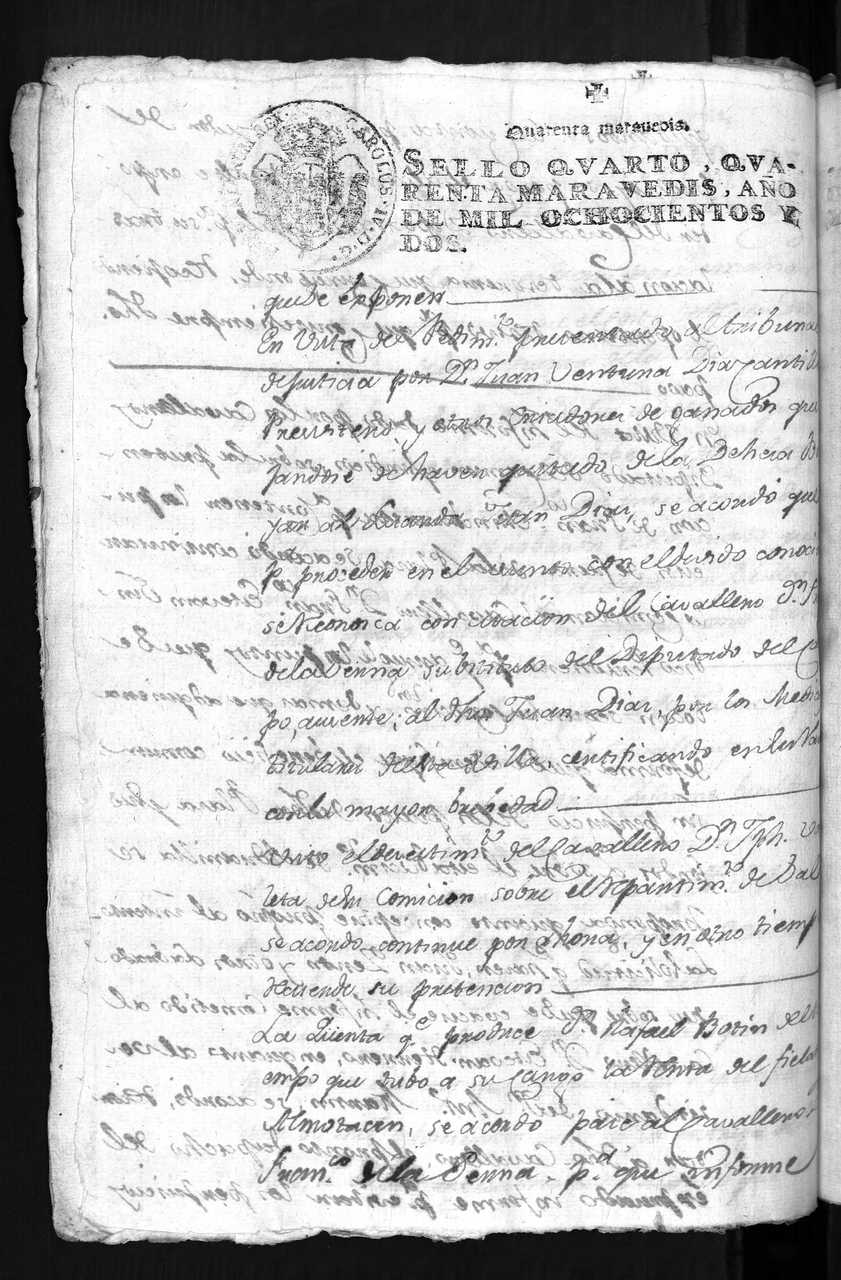 Quarenta marauedis.
SELLO QVARTO, QVA-
RENTA MARAVEDIS, AÑO
DE MIL OCHOCIENTOS Y
DOS.
CAROLUS·IV·D·G·
que se exponen
En Vista del Pedim.to presentado al tribuna
de justicia por D.n Juan Ventura Diaz
y otros Criadores de ganados que
jandose de haver quitado de la Dehesa
Juan Diaz, se acordó que
p.a proceder en el asunto con el devido conoci
se Reconosca con citacion del Cavallero D.n
de la Penna substituto del Diputado del
po, ausente, al dho Juan Diaz, por los Medi
titulares de esta Villa, certificando
con la mayor brevedad
Visto el desestim.to del Cavallero D.n Jph.
leta de su Comicion sobre el Repartim.to de
se acordó continue por ahora, y en otro tiemp
haciendo su pretencion
La Quenta q.e produce D.n Rafael Botin del
empo que tubo a su Cargo la Renta del fiel
Almotacan, se acordó pase al Cavallero
Fran.co de la Penna, p.a que informe